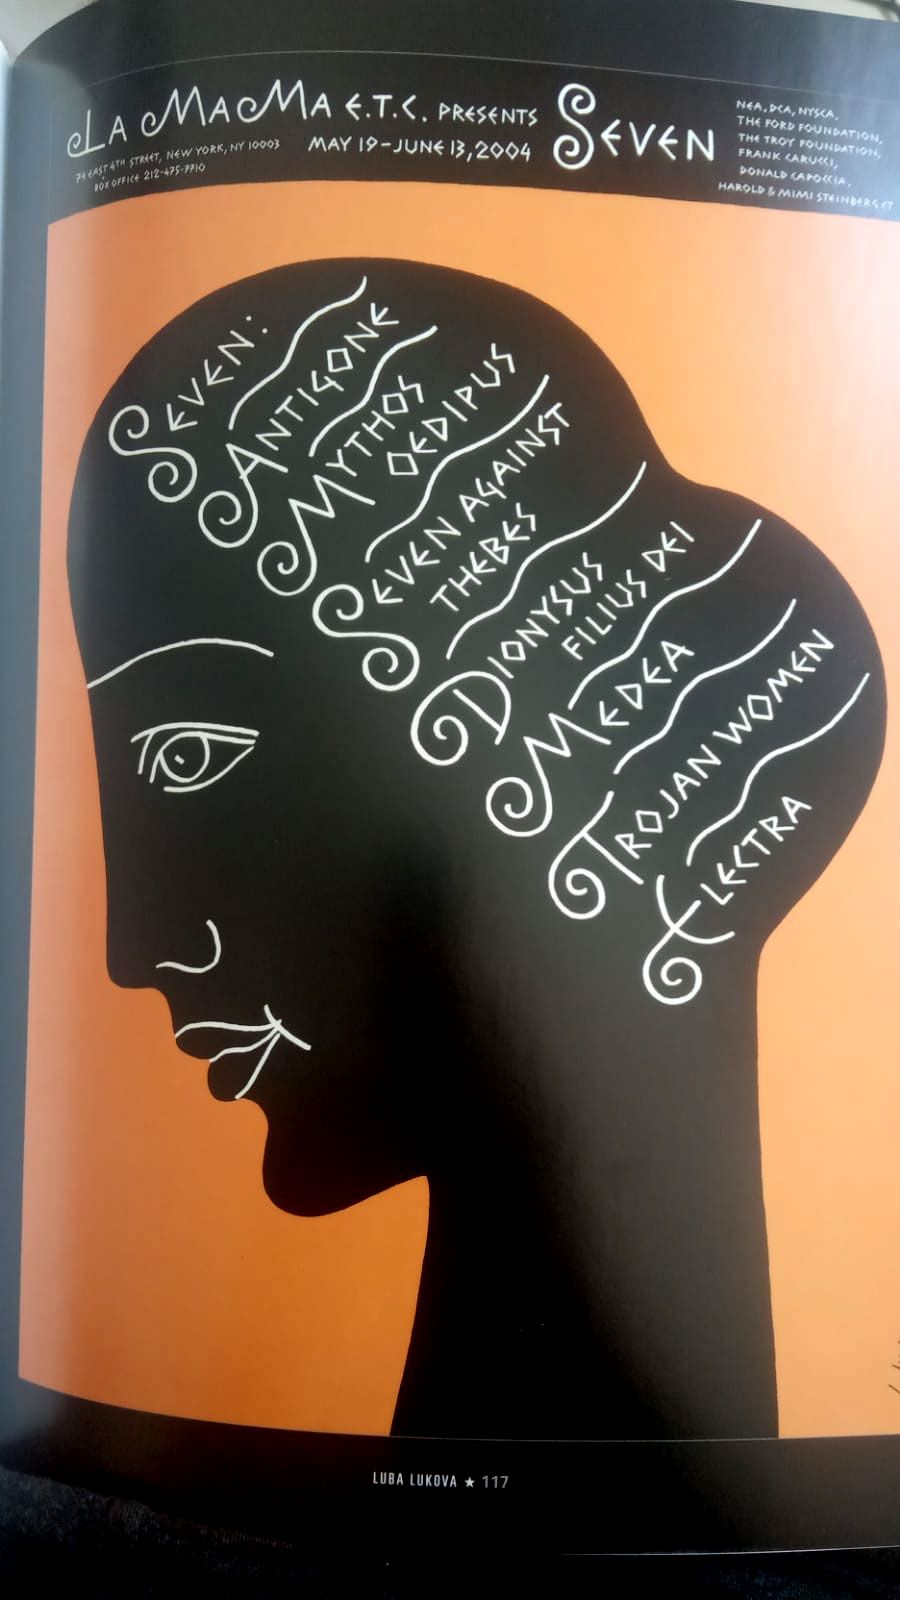 La MaMa E.T.C. PRESENTS
74 EAST 4TH STREET, NEW YORK, NY 10003
BOX OFFICE 212-475-7710
MAY 19-JUNE 13, 2004
SEVEN
NEA, DCA, NYSCA,
THE FORD FOUNDATION,
THE TROY FOUNDATION,
FRANK CARUCCI,
DONALD CAPOCCIA,
HAROLD & MIMI STEINBERG CT
SEVEN:
ANTIGONE
MYTHOS
OEDIPUS
SEVEN AGAINST
THEBES
DIONYSUS
FILIUS DEI
MEDEA
TROJAN WOMEN
ELECTRA
LUBA LUKOVA ★ 117